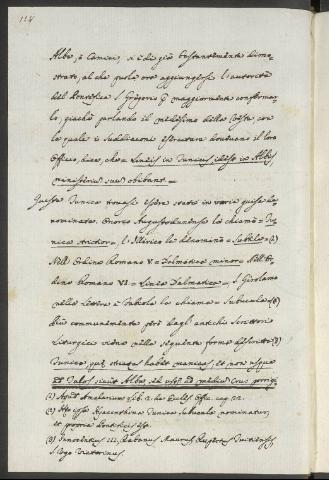 114
Albe, ò Camici, si è di già bastantemente dimo-
strato, al che puole ora aggiungersi l'autorità
del Pontefice S. Gregorio p maggiormente confermar-
lo, giachè parlando il medesimo della veste, con
la quale i Suddiaconi esercitare dovevano il loro
Officio, dice, che = Lineis in Tunicis, idest in Albis
ministerium suum obibant =
Questa Tunica trovasi essere stata in varie guise de-
nominata. Onorio Augustodunense la chiama = Tu-
nica strictior = l'Alerico la denomina = Subtile = (2)
Nell'Ordine Romano V = Dalmatica minor = Nell'Or-
dine Romano VI = Linea Dalmatica = S. Girolamo
nella Lettera à Fabiola la chiama = Subucula = (2)
Più comunemente però dagli antichi Scrittori
Liturgici viene nella seguente forma descritta (3)
Tunica quæ strictas habet manicas, et non usque
ad Talos sicut Alba, sed usque ad medium Crus porrigi
(1) Apud Amalarium Lib. 2. de Eccles. Offic. cap. 22.
(2) Hyacinthina Tunica Subucula nominatur,
et propria Pontificis est.
(3) Innocentius III, Rabanus Maurus, Rupertus Tuitiensis,
& Ugo Victorinus.